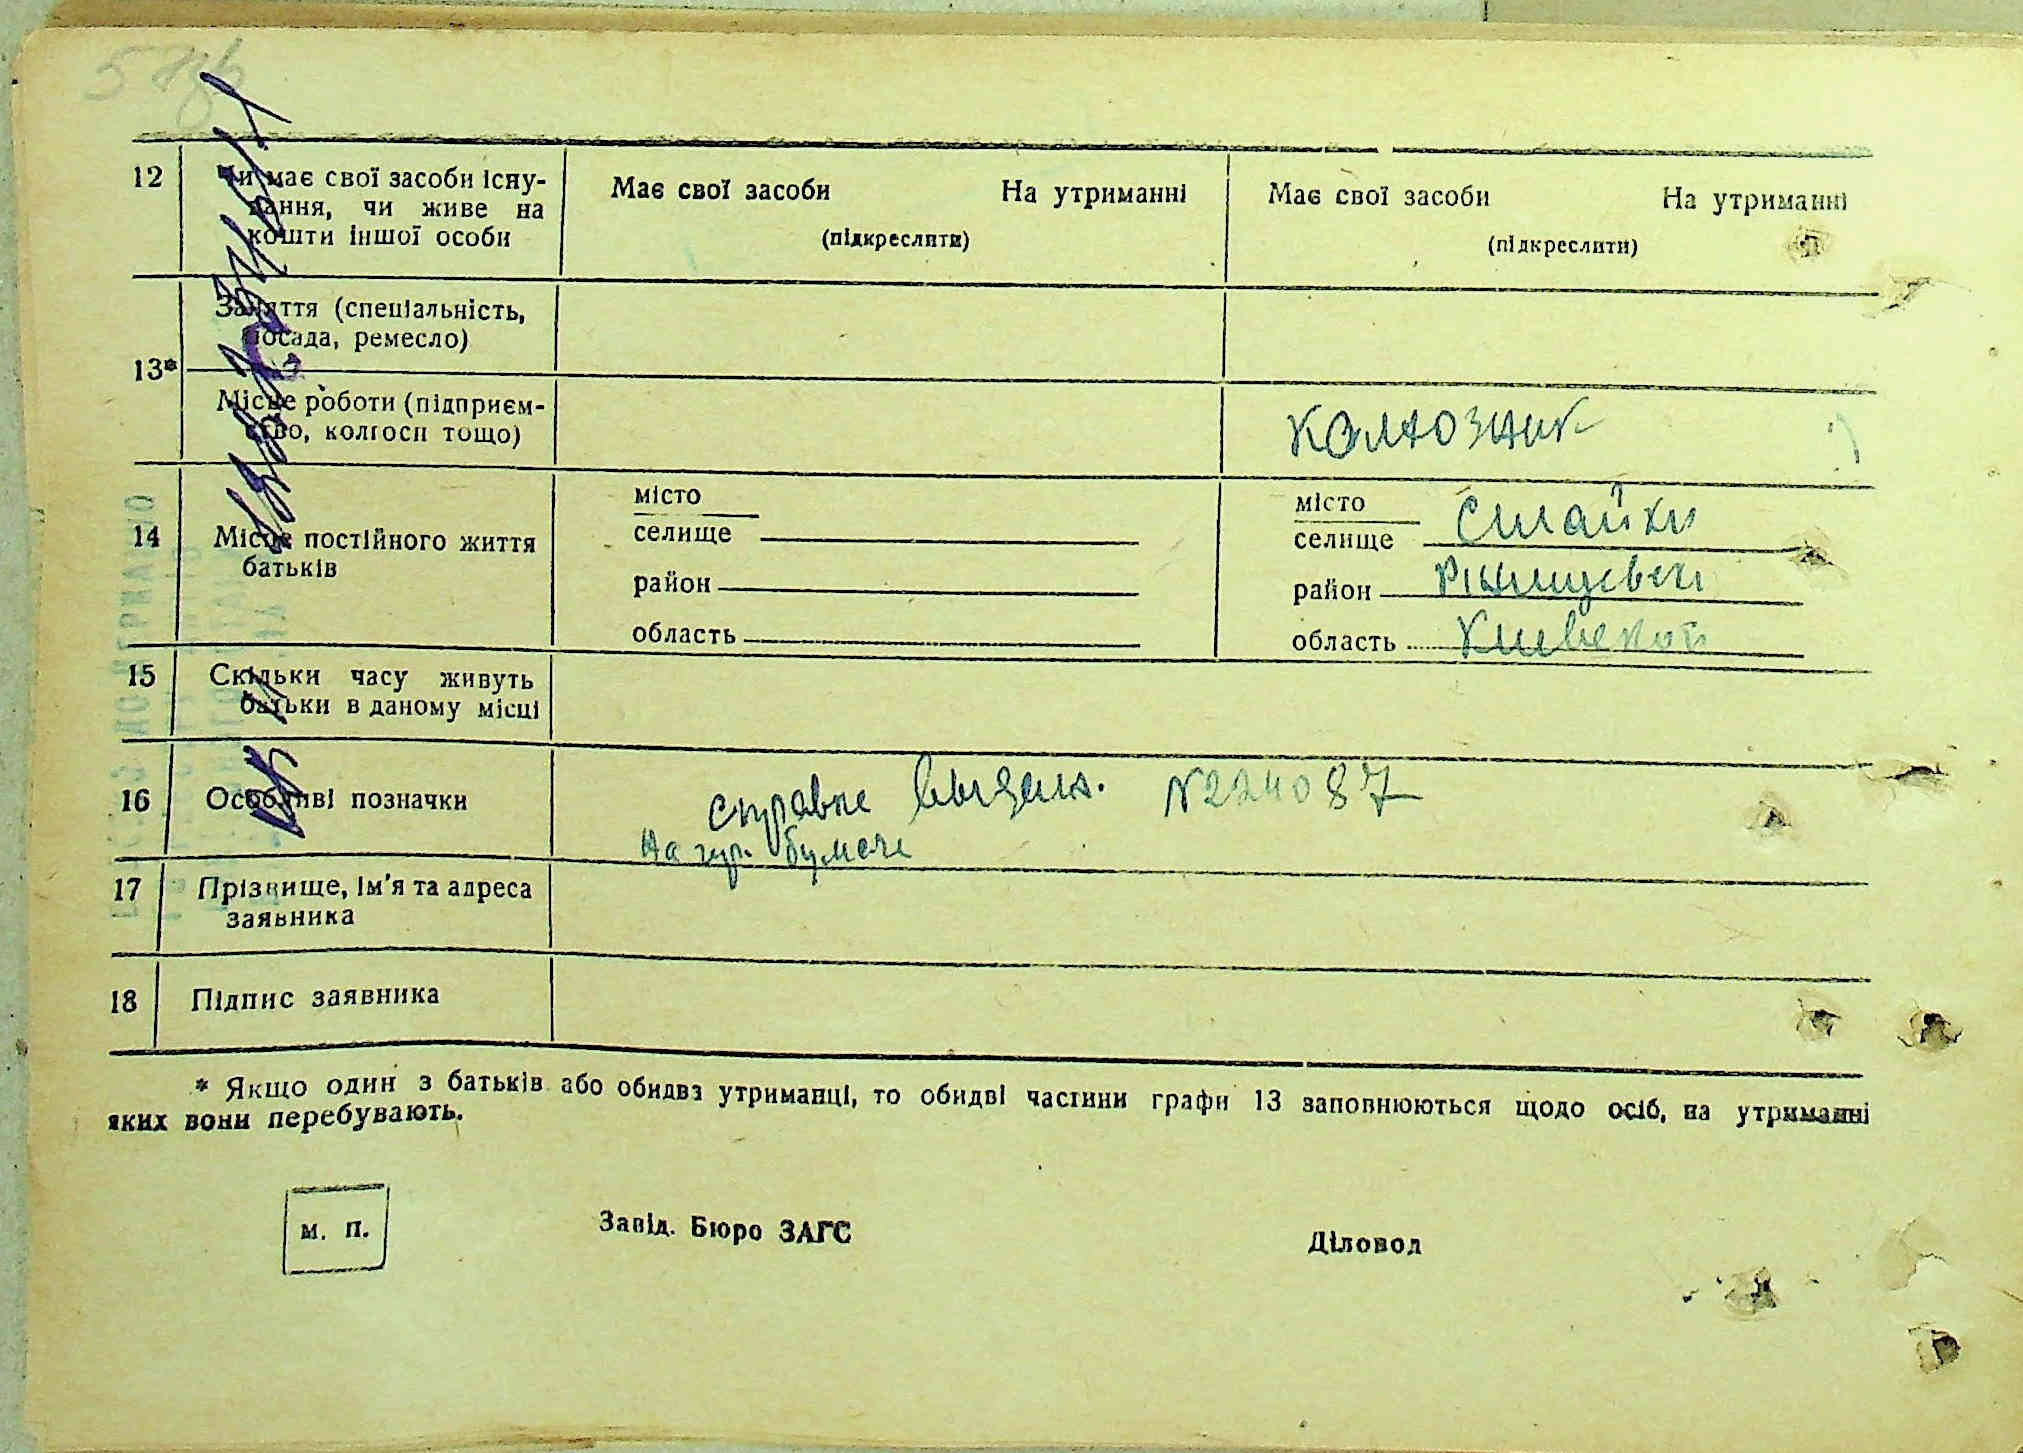 12
Чи має свої засоби існу-
вання, чи живе на
кошти іншої особи
Має свої засоби На утриманні
(підкреслити)
Має свої засоби На утриманні
(підкреслити)
13*
Заняття (спеціальність,
посада, ремесло)
Місце роботи (підприєм-
ство, колгосп тощо)
колхозник
14
Місце постійного життя
батьків
місто
селище
район
область
місто
селище Стайки
район Ржищевски
область Киевской
15
Скільки часу живуть
батьки в даному місці
16
Особливі позначки
справке выдана. N224087
на гер. бумаге
17
Прізвище, ім'я та адреса
заявника
18
Підпис заявника
* Якщо один з батьків або обидва утриманці, то обидві частини графи 13 заповнюються щодо осіб, на утриманні
яких вони перебувають.
м. п.
Завід. Бюро ЗАГС
Діловод